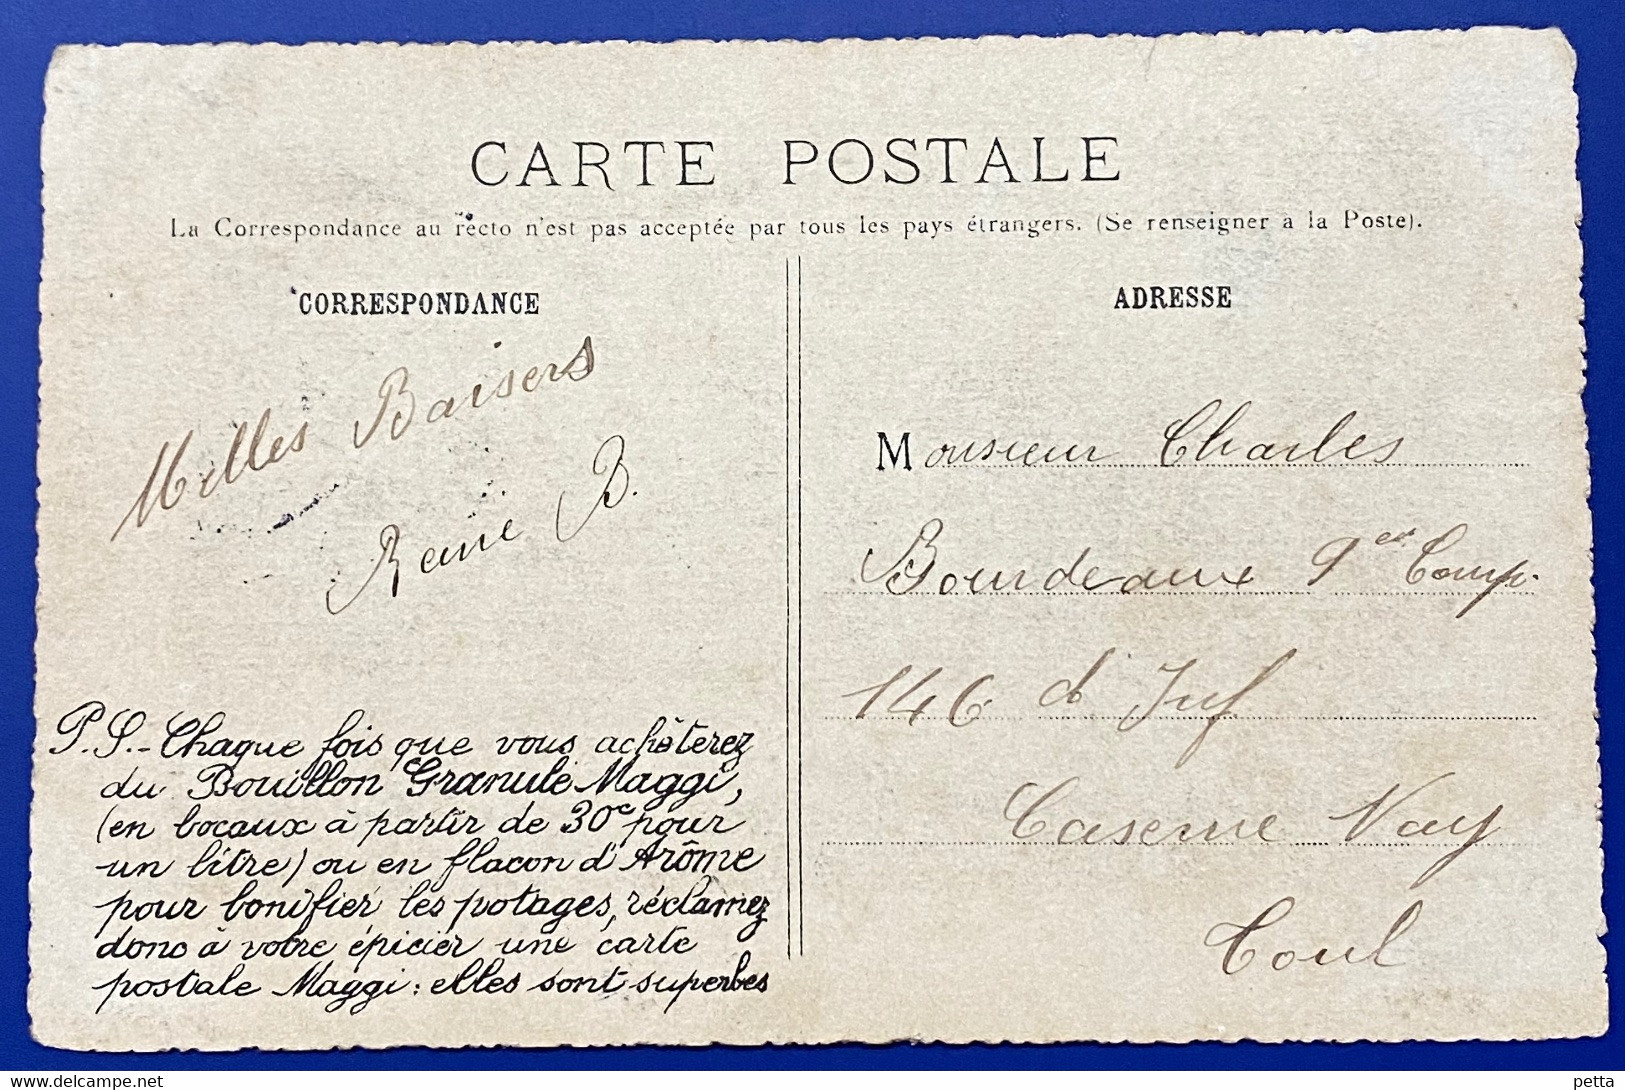 CARTE POSTALE
La Correspondance au recto n'est pas acceptée par tous les pays étrangers. (Se renseigner a la Poste).
CORRESPONDANCE
Milles Baisers
B.
P.S.- Chaque fois que vous achèterez
du Bouillon Granulé Maggi,
(en bocaux à partir de 30c pour
un litre) ou en flacon d'Arôme
pour bonifier les potages, réclamez
donc à votre épicier une carte
postale Maggi: elles sont superbes
ADRESSE
Monsieur Charles
Bourdeaux Comp.
146 d Inf
Caserne Nay
Toul
petta